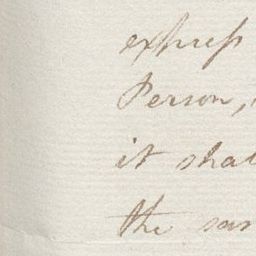 express
Person,
it shal
the sam